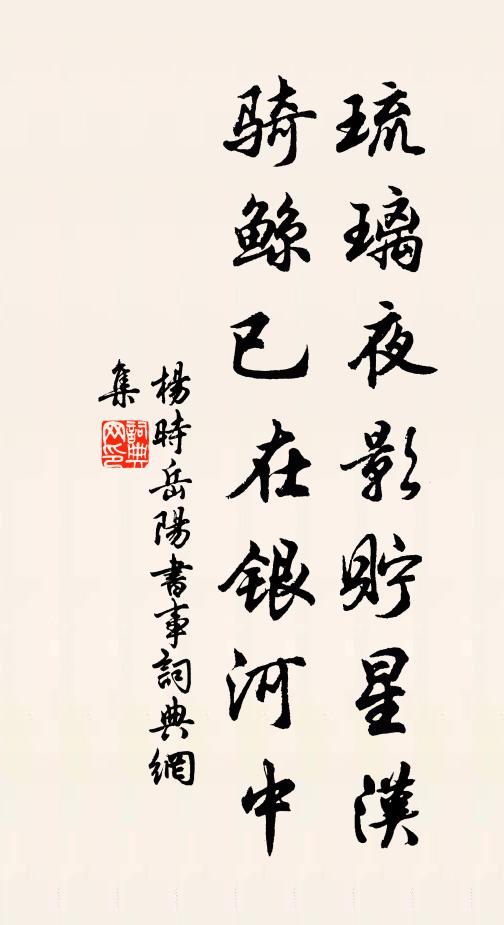 琉璃夜影貯星漢
騎鯨已在銀河中
楊時岳陽書事詞典網
集
詞典網印